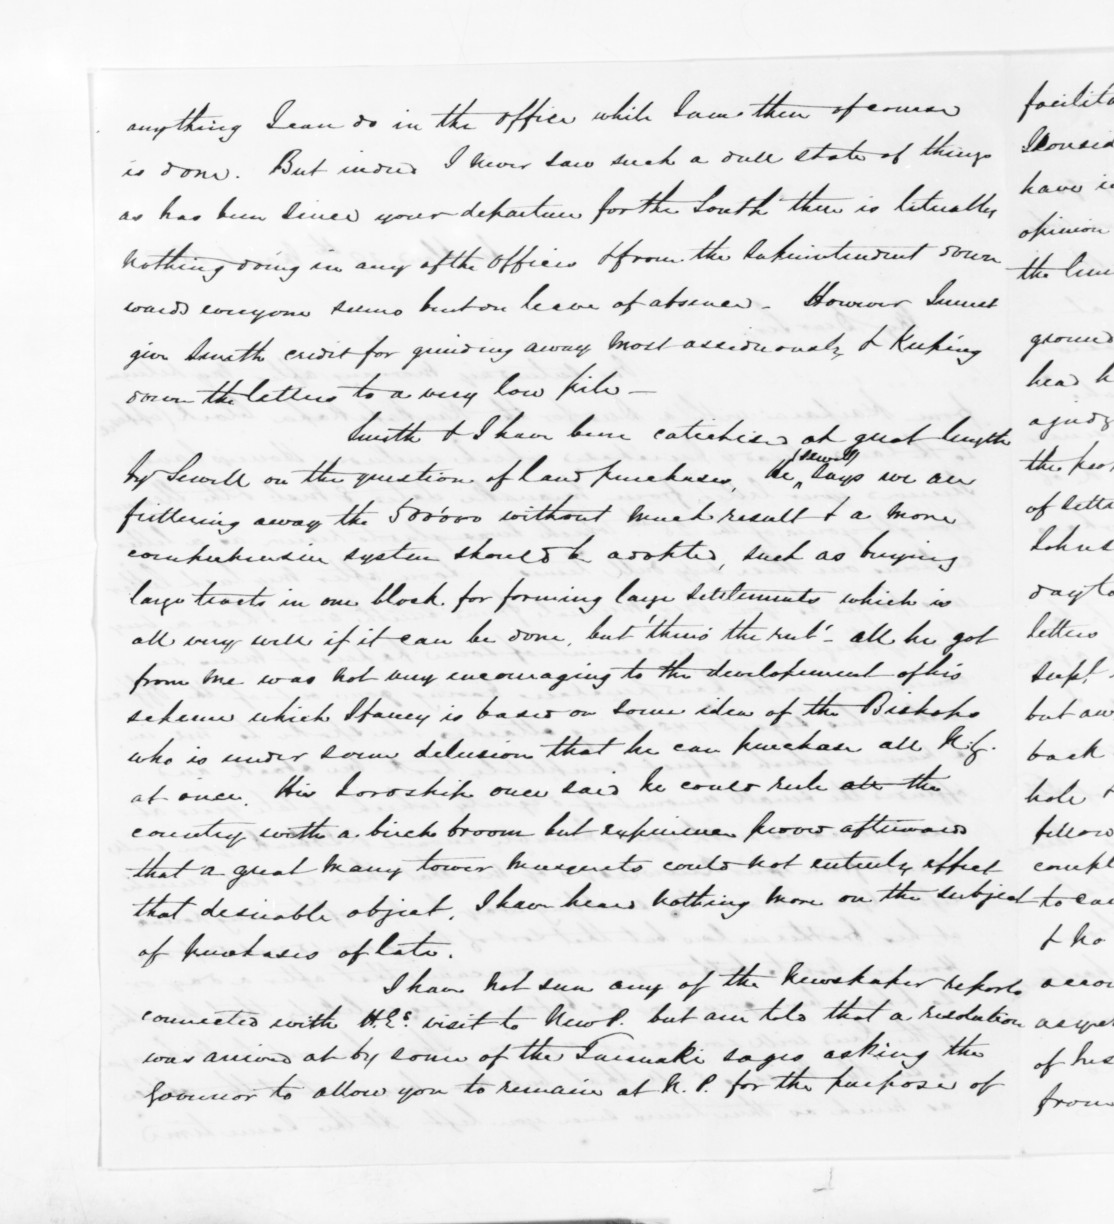 anything I can do in the office while I am there of course
is done. But indeed I never saw such a dull state of things
as has been since your departure for the South there is literally
nothing doing in any of the Offices & from the Superintendent down
wards everyone seems bent on leave of absence. However I must
give Smith credit for grinding away most assiduously & keeping
down the letters to a very low pile —
Smith & I have been catechised at great length
by Sewell on the question of land purchases, He (Sewell) says we are
frittering away the 500'000 without much result & a more
comprehensive system should be adopted, such as buying
large tracts in one block for forming large settlements which is
all very well if it can be done, but 'there's the rub' - all he got
from me was not very encouraging to the developement of his
scheme which I fancy is based on some idea of the Bishops
who is under some delusion that he can purchase all N.Z.
at once. His Lordship once said he could rule all the
country with a birch broom but experience proved afterwards
that a great many tower muskets could not entirely effect
that desirable object. I have heard nothing more on the subject
of purchases of late.
I have not seen any of the Newspaper reports
connected with H.Es. visit to New P. but am told that a resolution
was arrived at by some of the Taranaki sages asking the
Governor to allow you to remain at N. P. for the purpose of
have
opinion
the
head
of
letters
Supt.
but
back
hole
fellow
& no
of his
from